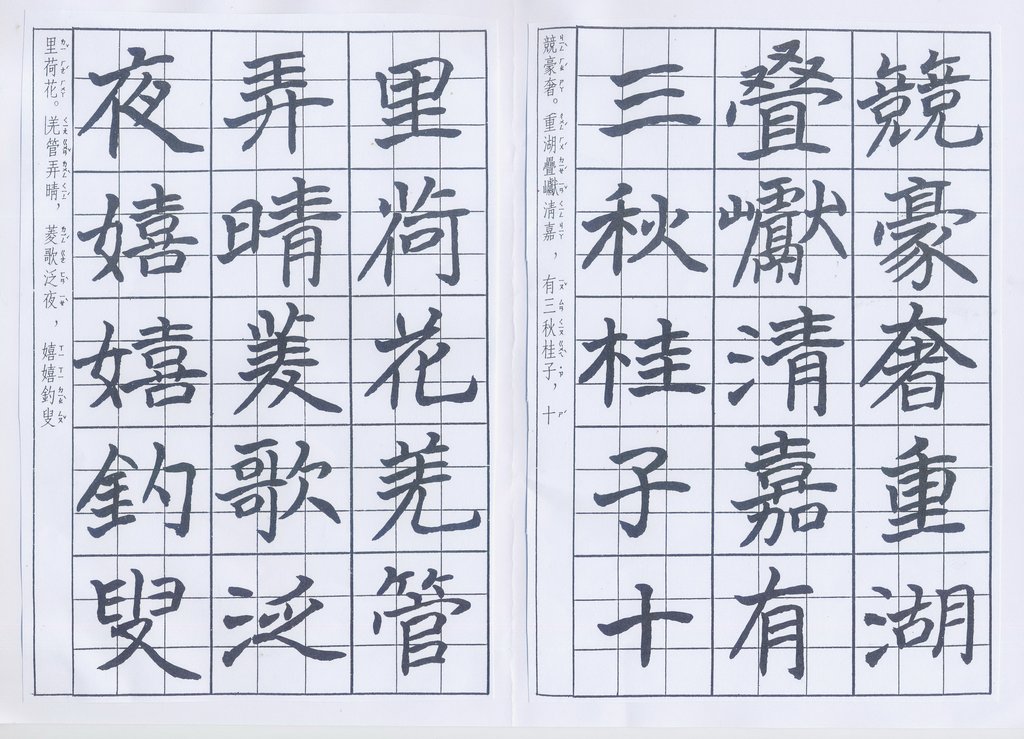 競豪奢。重湖疊巘清嘉，有三秋桂子，十
競豪奢重湖
疊巘清嘉有
三秋桂子十
里荷花。羌管弄晴，菱歌泛夜，嬉嬉釣叟
里荷花羌管
弄晴菱歌泛
夜嬉嬉釣叟